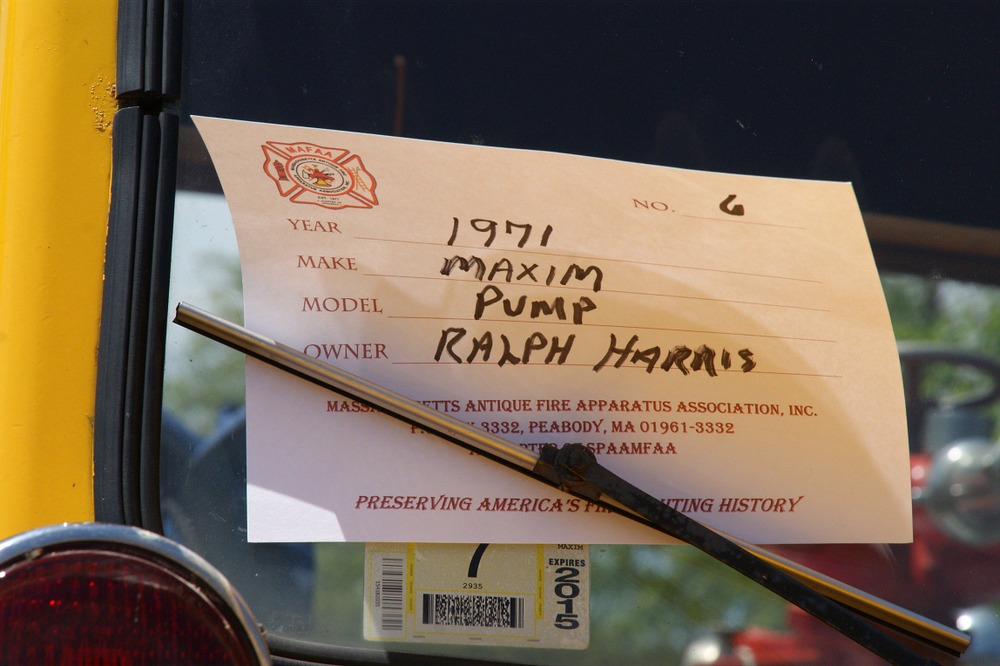 MAFAA
NO. 6
YEAR 1971
MAKE MAXIM
MODEL PUMP
OWNER RALPH HARRIS
ETTS ANTIQUE FIRE APPARATUS ASSOCIATION, INC.
3332, PEABODY, MA 01961-3332
SPAAMFAA
PRESERVING AMERICA'S HISTORY
MAXIM
7
EXPIRES
2015
2935